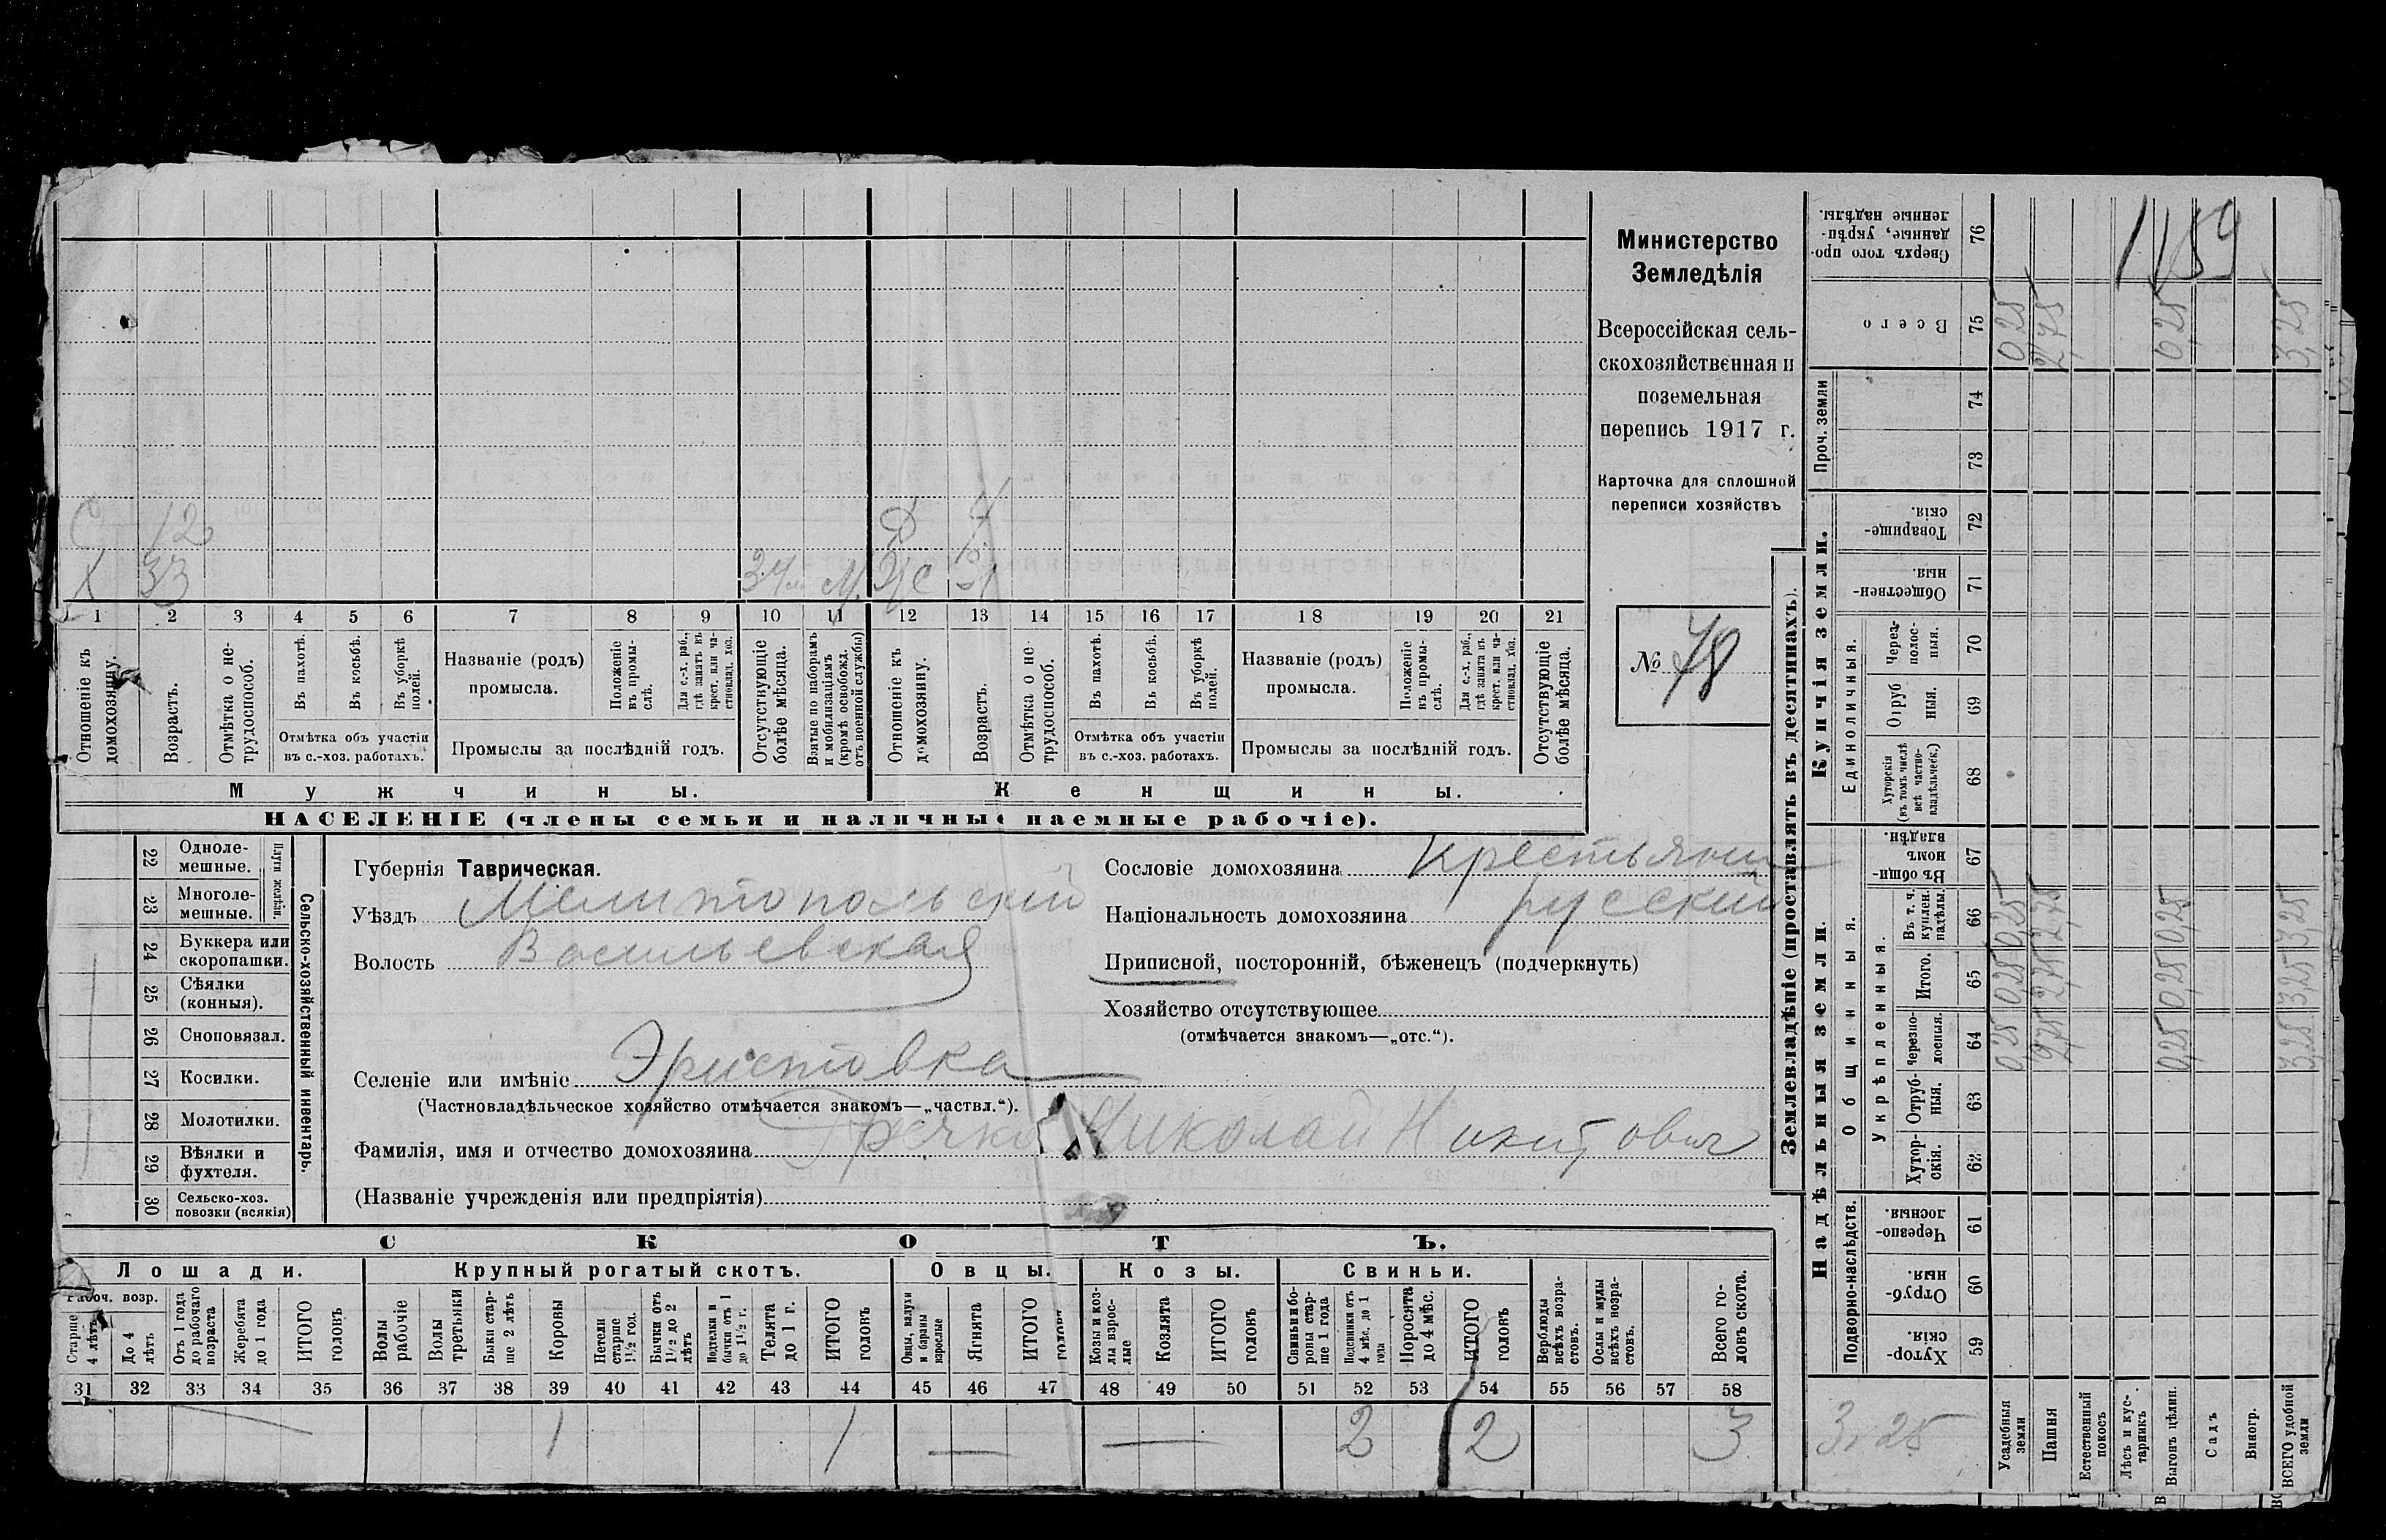 С 12 Д 7
Х 33 34 м. М. Ж
1 2 3 4 5 6 7 8 9 10 11 12 13 14 15 16 17 18 19 20 21
Отношеніе къ домохозяину.
Возрастъ.
Отмѣтка о не- трудоспособ.
Въ пахотѣ.
Въ косьбѣ.
Въ уборкѣ полей.
Отмѣтка объ участіи
въ с.-хоз. работахъ.
Названіе (родъ)
промысла.
Положеніе въ промы- слѣ.
Для с.-х. раб., гдѣ занятъ въ крест. или ча- стновлад. хоз.
Промыслы за послѣдній годъ.
Отсутствующіе болѣе мѣсяца.
Взятые по наборамъ и мобилизаціямъ (кромѣ освобожд. отъ военной службы)
Отношеніе къ домохозяину.
Возрастъ.
Отмѣтка о не- трудоспособ.
Въ пахотѣ.
Въ косьбѣ.
Въ уборкѣ полей.
Отмѣтка объ участіи
въ с.-хоз. работахъ.
Названіе (родъ)
промысла.
Положеніе въ промы- слѣ.
Для с.-х. раб., гдѣ занята въ крест. или ча- стновлад. хоз.
Промыслы за послѣдній годъ.
Отсутствующіе болѣе мѣсяца.
Мужчины.
Женщины.
НАСЕЛЕНІЕ (члены семьи и наличные наемные рабочіе).
Министерство
Земледѣлія
Всероссійская сель-
скохозяйственная и
поземельная
перепись 1917 г.
Карточка для сплошной
переписи хозяйствъ
№ 78
22 Одноле- мешные.
23 Многоле- мешные.
Плуги желѣзн.
24 Буккера или скоропашки.
25 Сѣялки (конныя).
26 Сноповязал.
27 Косилки.
28 Молотилки.
29 Вѣялки и фухтеля.
30 Сельско-хоз. повозки (всякія)
Сельско-хозяйственный инвентарь.
Губернія Таврическая.
Уѣздъ Мелитопольский
Волость Васильевская
Селеніе или имѣніе Эристовка
(Частновладѣльческое хозяйство отмѣчается знакомъ—„частвл.“).
Фамилія, имя и отчество домохозяина Николай Никитович
(Названіе учрежденія или предпріятія)
Сословіе домохозяина Крестьянин
Національность домохозяина русский
Приписной, посторонній, бѣженецъ (подчеркнуть)
Хозяйство отсутствующее
(отмѣчается знакомъ—„отс.“).
СКОТЪ.
Лошади. Крупный рогатый скотъ. Овцы. Козы. Свиньи.
Рабоч. возр.
Старше 4 лѣтъ
До 4 лѣтъ
Отъ 1 года до рабочаго возраста
Жеребята до 1 года
ИТОГО головъ
Волы рабочіе
Волы третьяки
Быки стар- ше 2 лѣтъ
Коровы
Нетели старше 1½ год.
Бычки отъ 1½ до 2 лѣтъ
Подтелки и бычки отъ 1 до 1½ г.
Телята до 1 г.
ИТОГО головъ
Овцы, валухи и бараны взрослые
Ягнята
ИТОГО головъ
Козы и коз- лы взрос- лые
Козлята
ИТОГО головъ
Свиньи и бо- ровы стар- ше 1 года
Подсвинки отъ 4 мѣс. до 1 года
Поросята до 4 мѣс.
ИТОГО головъ
Верблюды всѣхъ возра- стовъ.
Ослы и мулы всѣхъ возра- стовъ.
Всего го- ловъ скота.
31 32 33 34 35 36 37 38 39 40 41 42 43 44 45 46 47 48 49 50 51 52 53 54 55 56 57 58
— 1 1 — — 2 2 3
Землевладѣніе (проставлять въ десятинахъ).
Надѣльныя земли.
Купчія земли.
Проч. земли
Подворно-наслѣдств.
Общинныя.
Укрѣпленныя.
Единоличныя.
Сверхъ того про- данные, укрѣп- ленные надѣлы. 76
Всего 75
74
73
Товарище- скія. 72
Обществен- ныя. 71
Через- полос- ныя. 70
Отруб ныя. 69
Хуторскія (въ томъ числѣ всѣ частно- владѣльческ.) 68
Въ общи- номъ владѣн. 67
Въ т. ч. куплен. надѣлы. 66
Итого. 65
Черезпо- лосныя. 64
Отруб- ныя. 63
Хутор- скія. 62
Черезпо- лосныя 61
Отруб- ныя. 60
Хутор- скія. 59
1159
0,25 2,75 0,25 3,25
0,25 2,75 0,25 3,25
0,25 2,75 0,25 3,25
0,25 2,75 0,25 3,25
3,25
Усадебныя земли
Пашня
Естественный покосъ
Лѣсъ и кус- тарникъ
Выгонъ цѣлин.
Садъ
Виногр.
ВСЕГО удобной земли